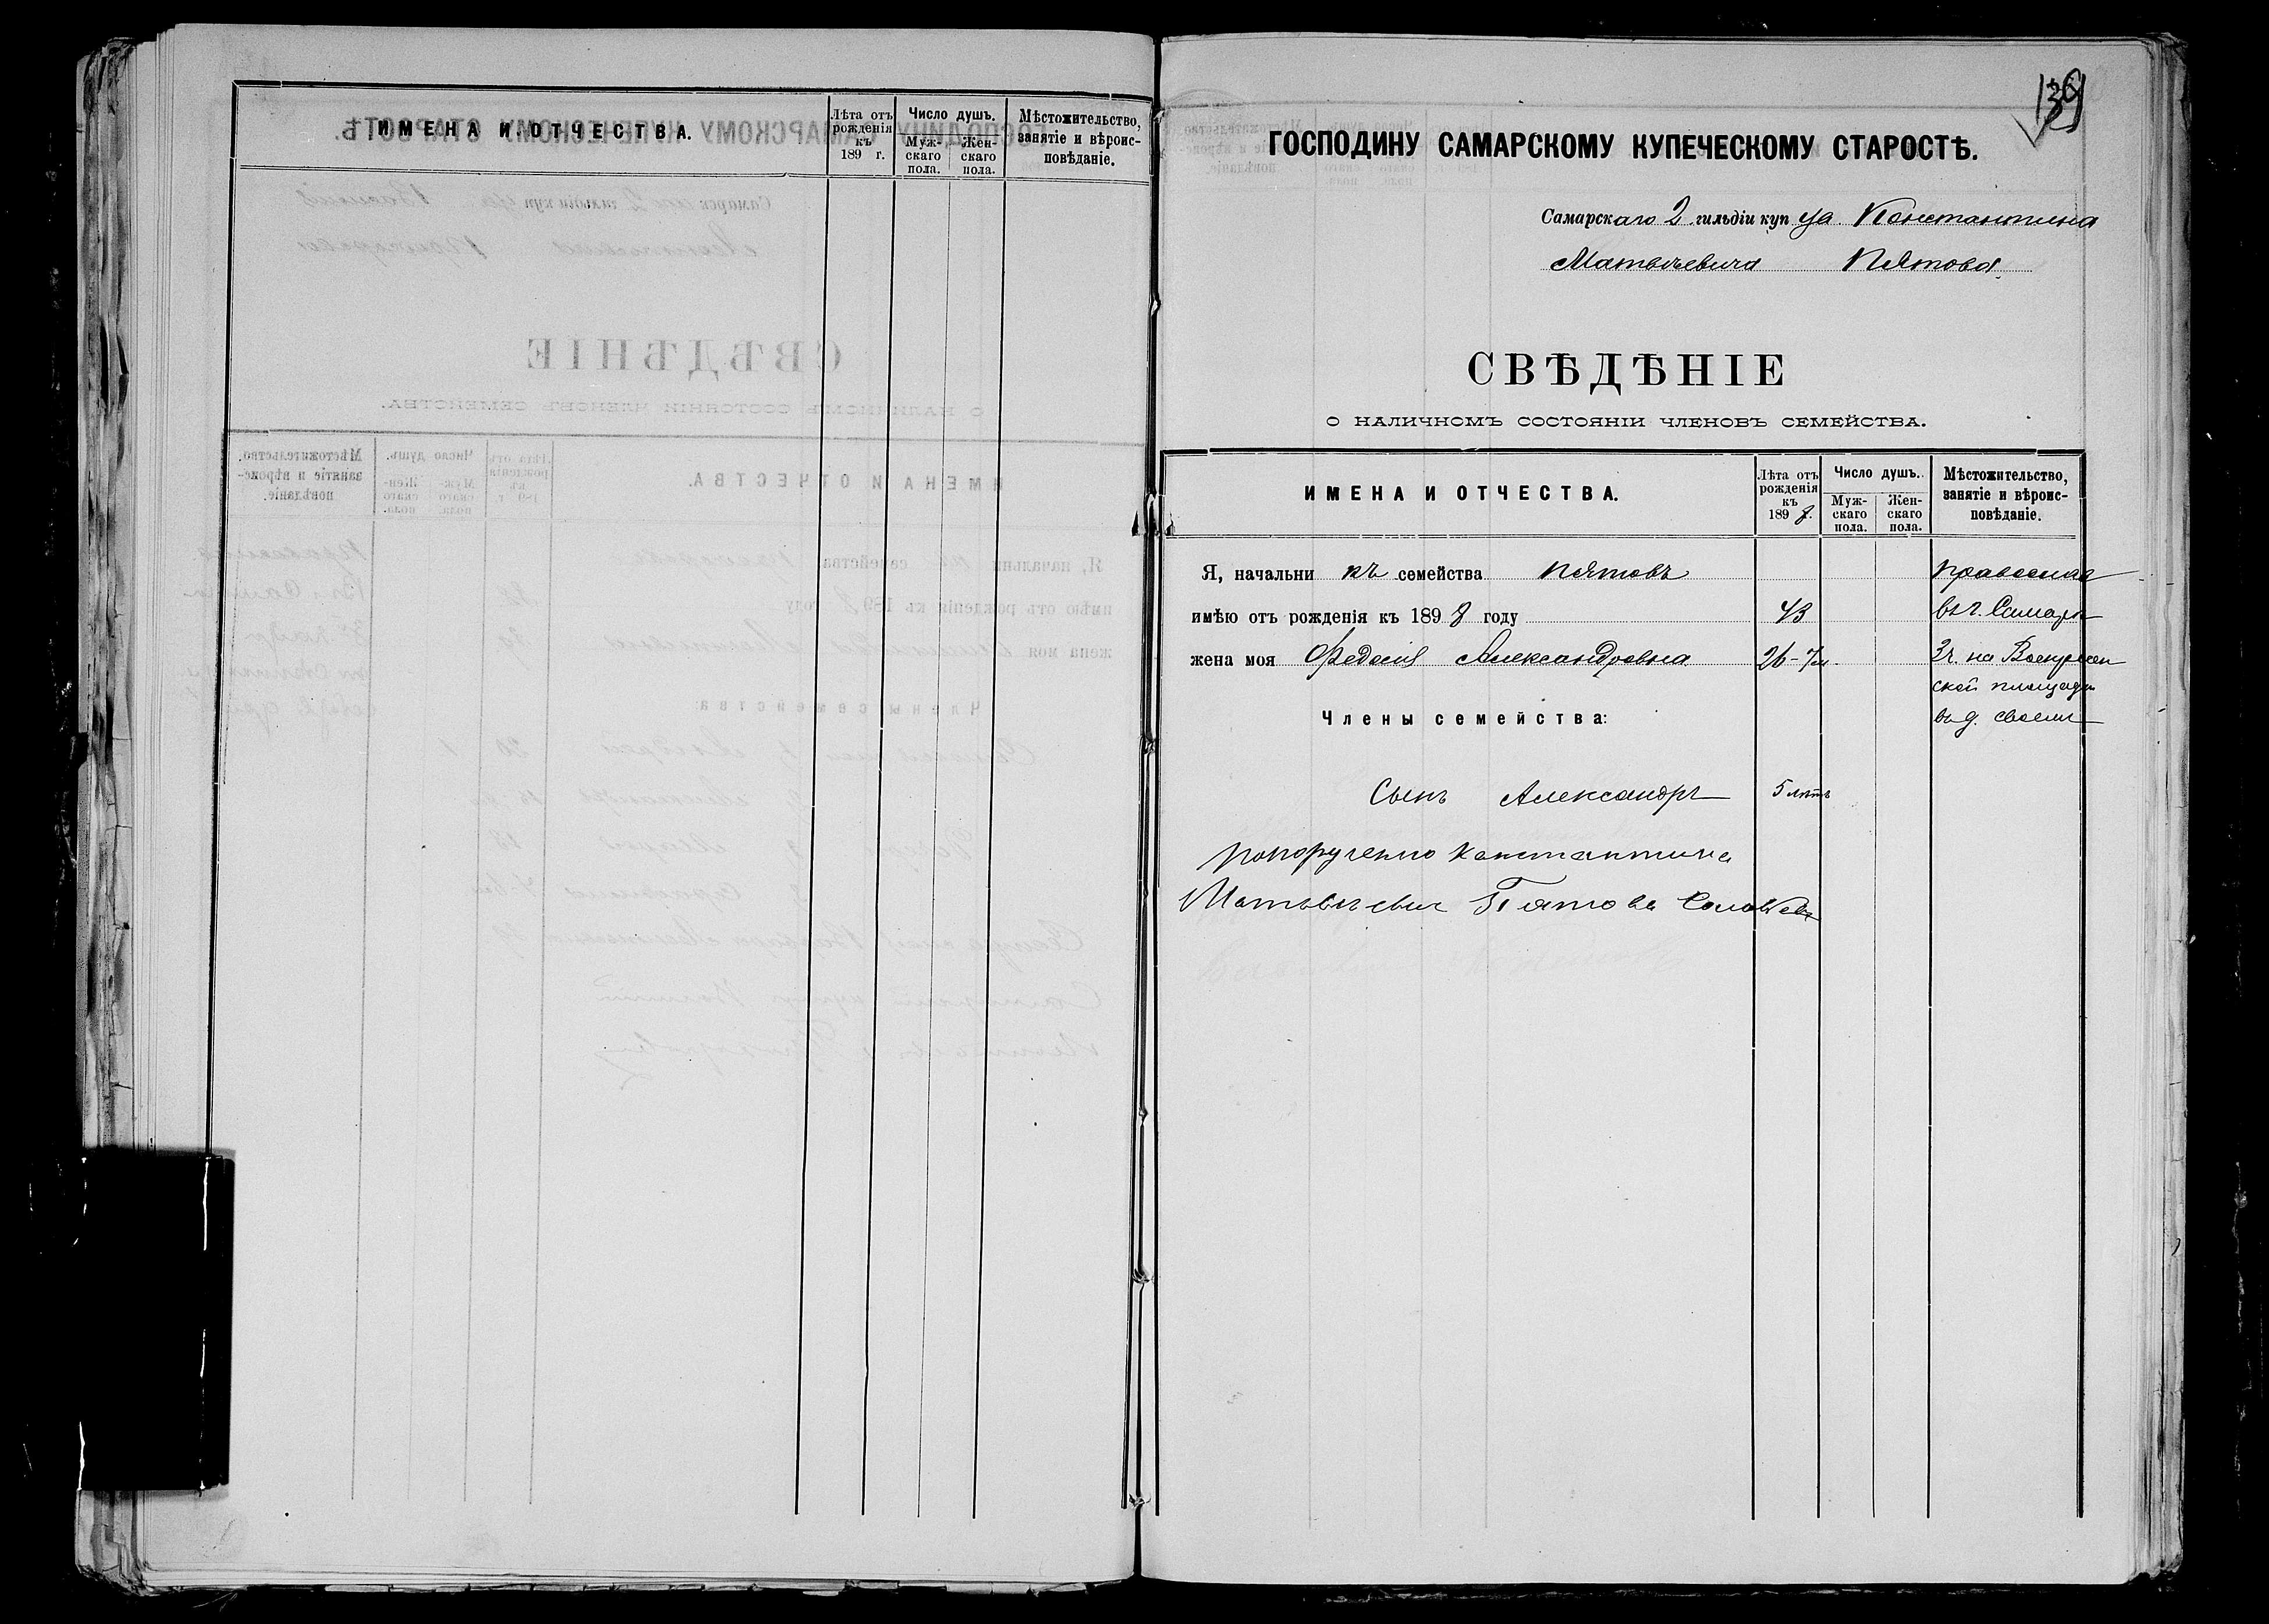 ИМЕНА И ОТЧЕСТВА.
Лѣта отъ рожденія къ 189 г.
Число душъ.
Муж-скаго пола.
Жен-скаго пола.
Мѣстожительство, занятіе и вѣроис-повѣданіе.
139
ГОСПОДИНУ САМАРСКОМУ КУПЕЧЕСКОМУ СТАРОСТѢ.
Самарскаго 2 гильдіи купца Константина
Матвѣевича Пятова.
СВѢДѢНІЕ
О НАЛИЧНОМЪ СОСТОЯНІИ ЧЛЕНОВЪ СЕМЕЙСТВА.
ИМЕНА И ОТЧЕСТВА.
Лѣта отъ рожденія къ 1898 г.
Число душъ.
Муж-скаго пола.
Жен-скаго пола.
Мѣстожительство, занятіе и вѣроис-повѣданіе.
Я, начальникъ семейства Пятовъ православ
имѣю отъ рожденія къ 1898 году 43 въ г. Самарѣ
жена моя Федосія Александровна 26-7м. 3 ч. на Воскресен
ской площади
Члены семейства: въ д. своемъ
Сынъ Александръ 5 лѣтъ
по порученію Константина
Матвѣевич Пятова